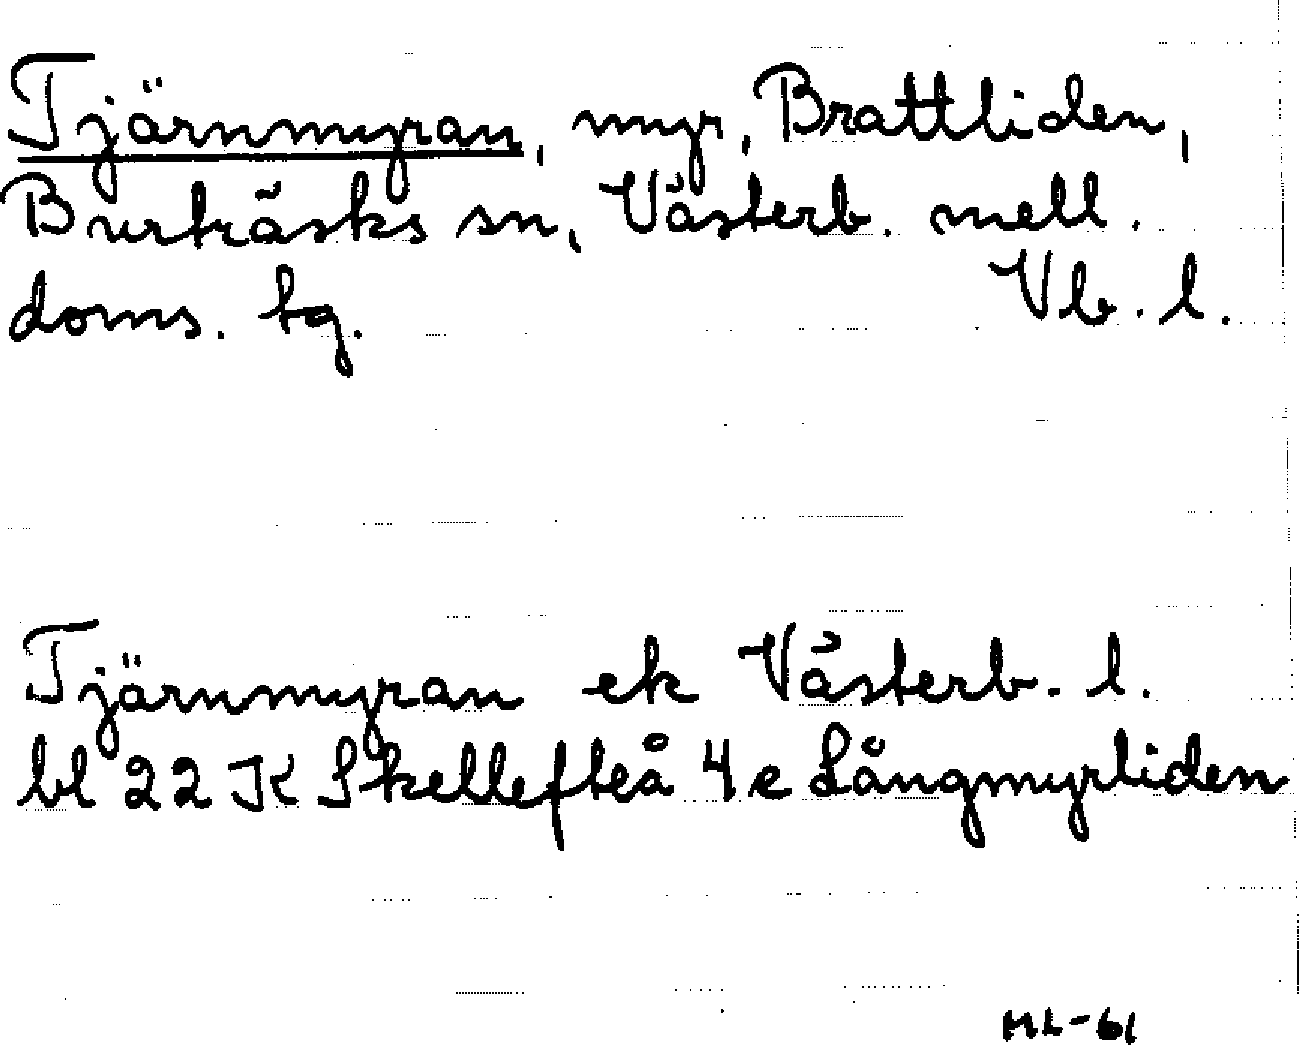 Tjärnmyran, myr, Brattliden,
Burträsks sn, Västerb. mell.
doms. tg. Vb. l.
Tjärnmyran ek Västerb. l.
bl 22 K Skellefteå 4 e Långmyrliden
ML-61